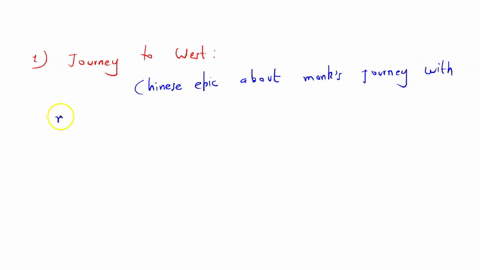 1) Journey to West:
Chinese epic about monk's journey with
r